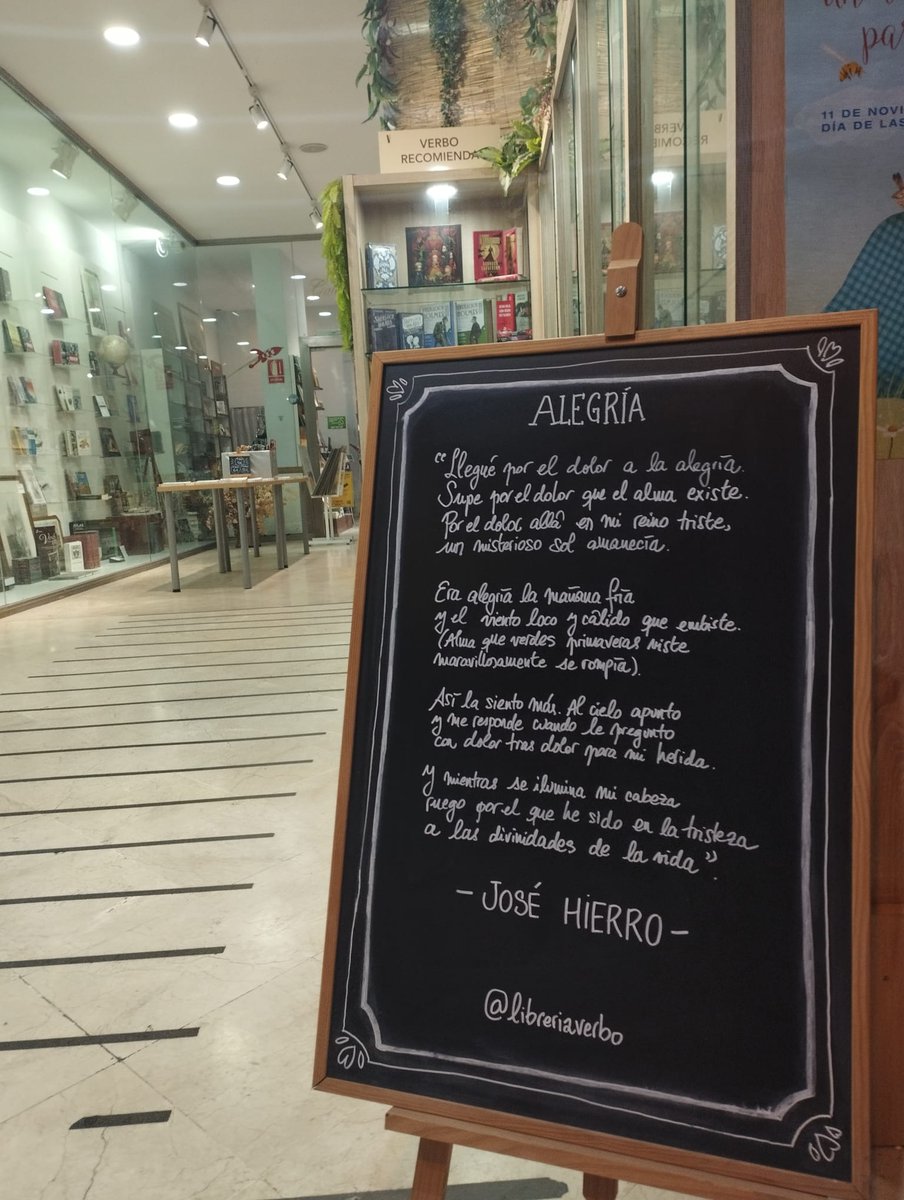 VERBO
RECOMIENDA
11 DE NOVI
DÍA DE LAS
ALEGRÍA
"Llegué por el dolor a la alegría.
Supe por el dolor que el alma existe.
Por el dolor, allá en mi reino triste,
un misterioso sol amanecía.
Era alegría la mañana fría
y el viento loco y cálido que embiste.
(Alma que verdes primaveras viste
maravillosamente se rompía).
Así la siento más. Al cielo apunto
y me responde cuando le pregunto
con dolor tras dolor para mi herida.
Y mientras se ilumina mi cabeza
ruego por el que he sido en la tristeza
a las divinidades de la vida".
- JOSÉ HIERRO -
@libreriaverbo